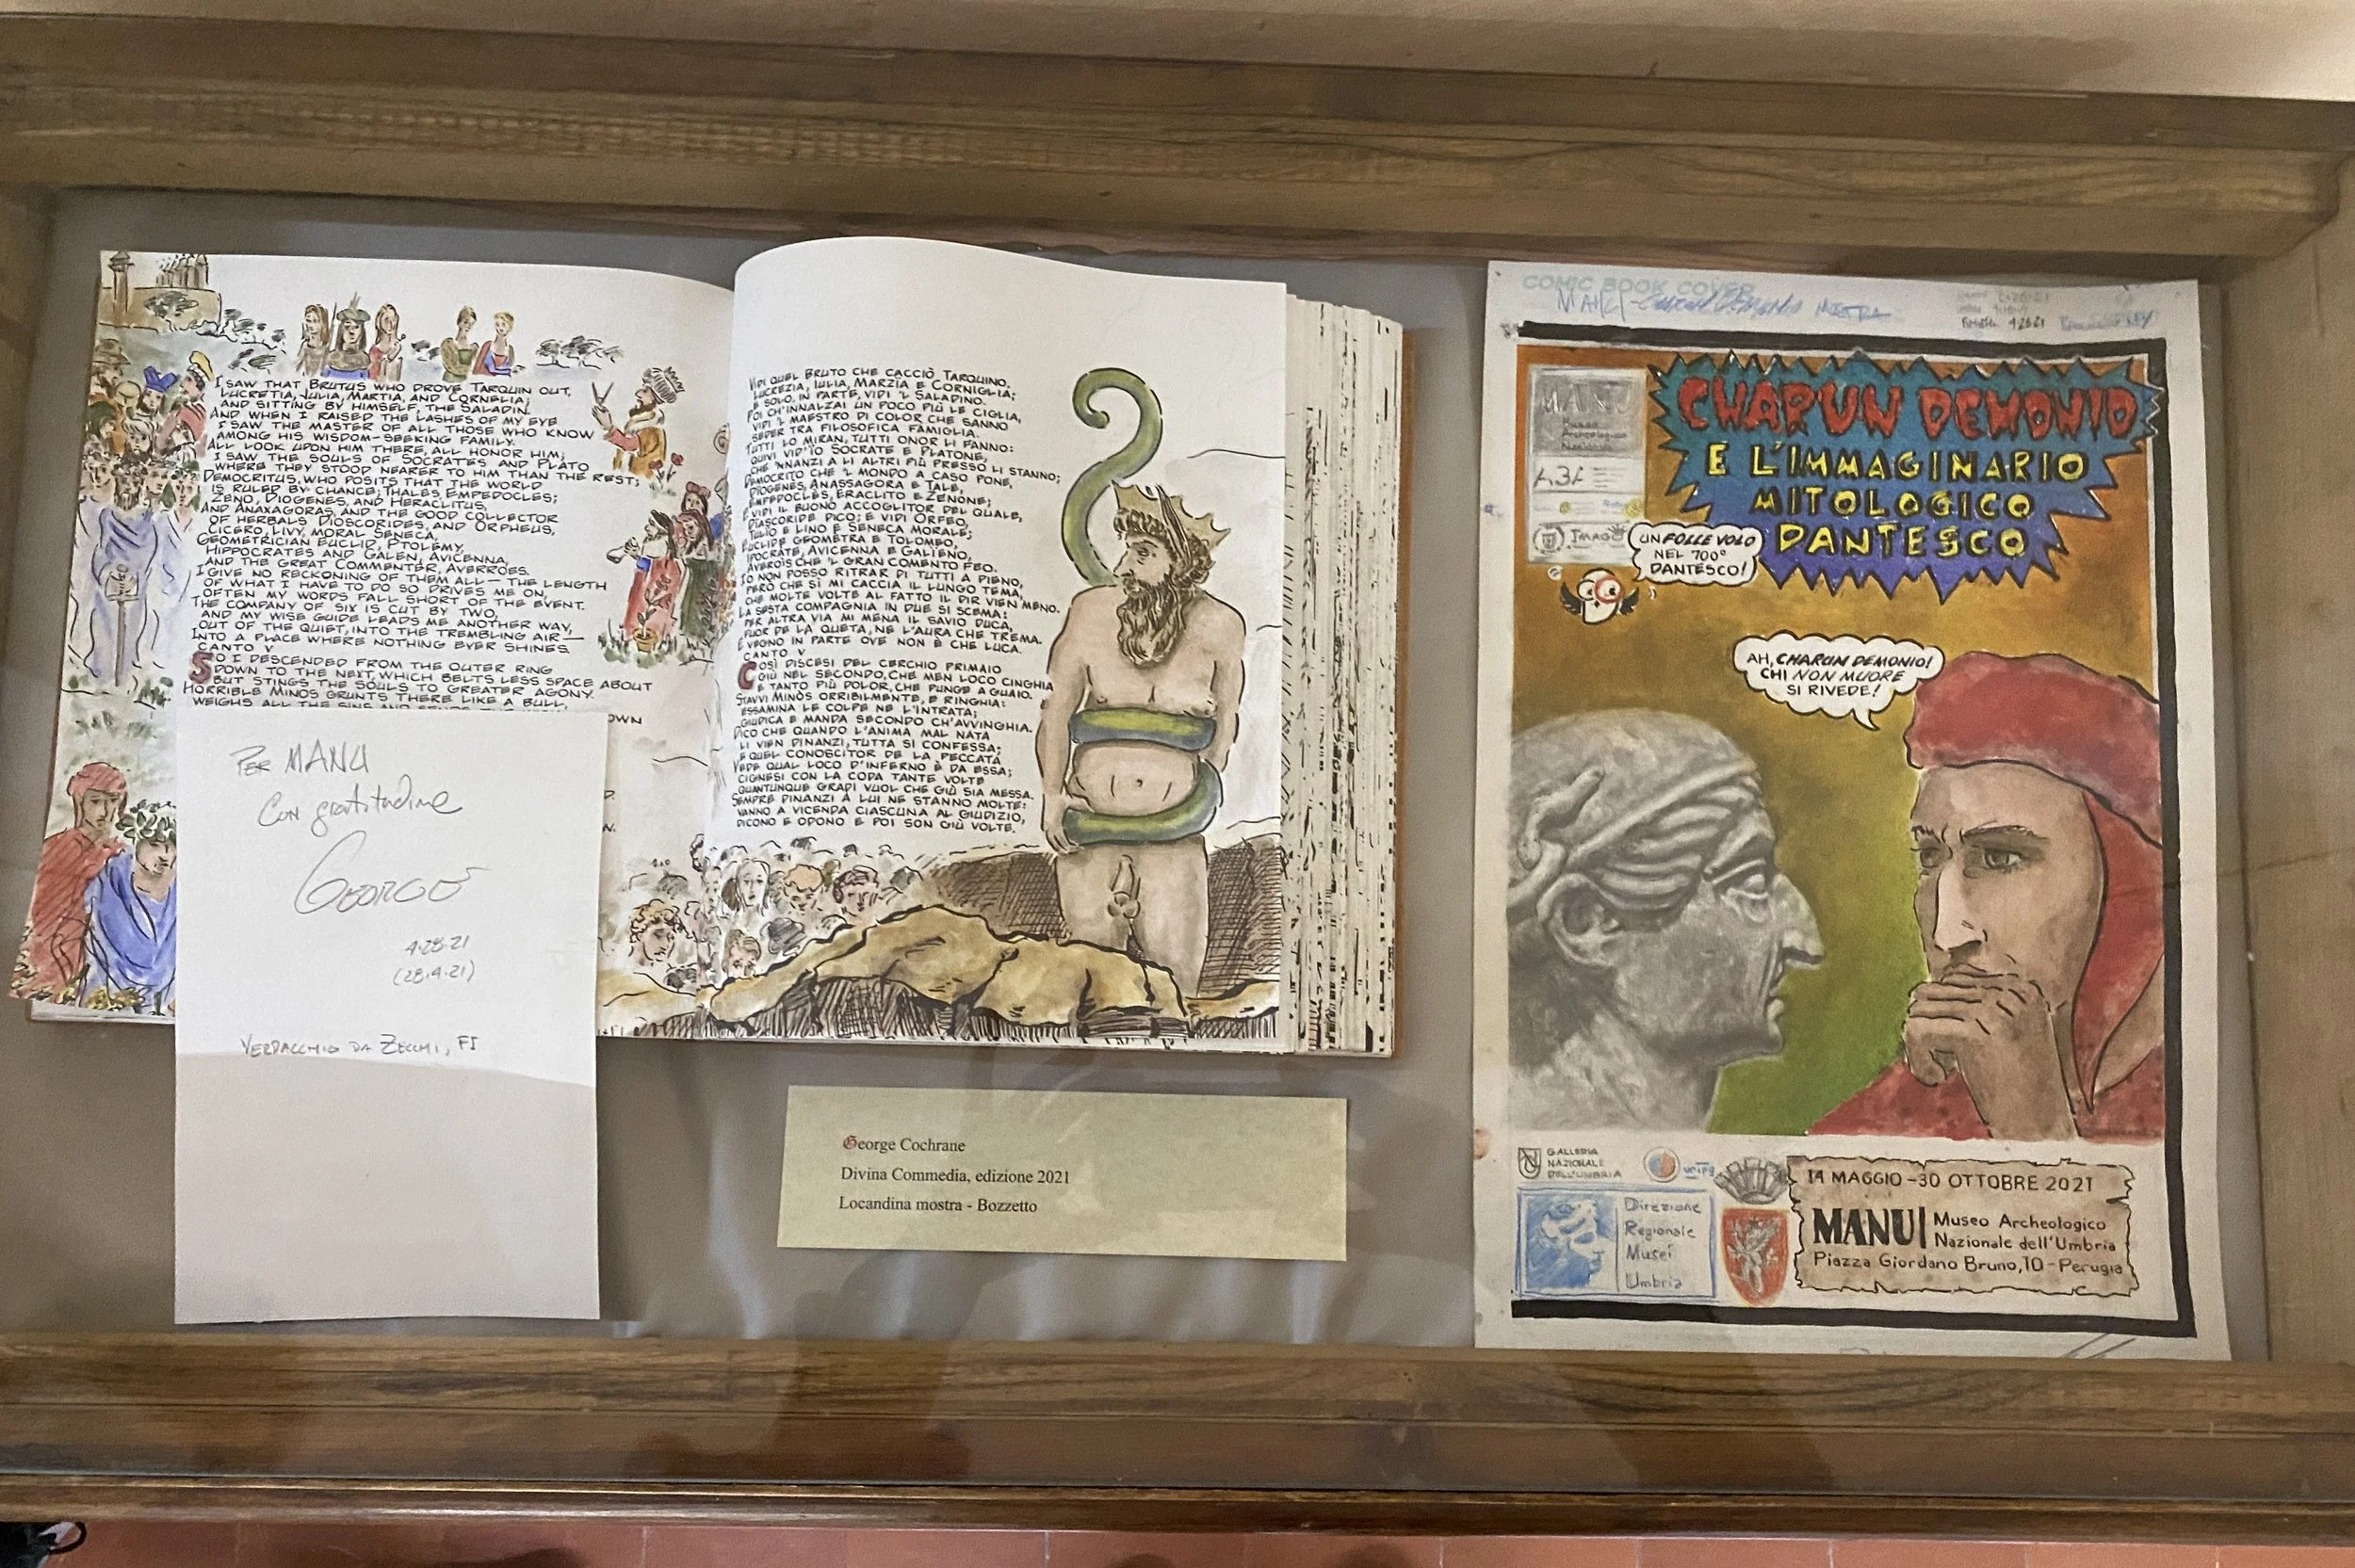 I SAW THAT BRUTUS WHO DROVE TARQUIN OUT,
LUCRETIA, JULIA, MARTIA, AND CORNELIA;
AND SITTING BY HIMSELF, THE SALADIN.
AND WHEN I RAISED THE LASHES OF MY EYE
I SAW THE MASTER OF ALL THOSE WHO KNOW
AMONG HIS WISDOM-SEEKING FAMILY.
ALL LOOK UPON HIM THERE, ALL HONOR HIM;
I SAW THE SOULS OF SOCRATES AND PLATO
WHERE THEY STOOD NEARER TO HIM THAN THE REST;
DEMOCRITUS, WHO POSITS THAT THE WORLD
IS RULED BY CHANCE; THALES, EMPEDOCLES;
ZENO, DIOGENES, AND HERACLITUS,
AND ANAXAGORAS, AND THE GOOD COLLECTOR
OF HERBALS DIOSCORIDES, AND ORPHEUS,
CICERO, LIVY, MORAL SENECA,
GEOMETRICIAN EUCLID, PTOLEMY,
HIPPOCRATES AND GALEN, AVICENNA,
AND THE GREAT COMMENTER, AVERROËS.
I GIVE NO RECKONING OF THEM ALL— THE LENGTH
OF WHAT I HAVE TO DO SO DRIVES ME ON,
OFTEN MY WORDS FALL SHORT OF THE EVENT.
THE COMPANY OF SIX IS CUT BY TWO,
AND MY WISE GUIDE LEADS ME ANOTHER WAY,
OUT OF THE QUIET, INTO THE TREMBLING AIR—
INTO A PLACE WHERE NOTHING EVER SHINES.
CANTO V
SO I DESCENDED FROM THE OUTER RING
DOWN TO THE NEXT, WHICH BELTS LESS SPACE ABOUT
BUT STINGS THE SOULS TO GREATER AGONY.
HORRIBLE MINOS GRUNTS THERE LIKE A BULL,
WEIGHS ALL THE SINS AND
OWN
PER MANU
CON gratitudine
GEORGE
4.28.21
(28.4.21)
VERDACCHIO DA ZECCHI, FI
VIDI QUEL BRUTO CHE CACCIÒ TARQUINO,
LUCREZIA, IULIA, MARZIA E CORNIGLIA;
E SOLO, IN PARTE, VIDI 'L SALADINO.
POI CH'INNALZAI UN POCO PIÙ LE CIGLIA,
VIDI 'L MAESTRO DI COLOR CHE SANNO
SEDER TRA FILOSOFICA FAMIGLIA.
TUTTI LO MIRAN, TUTTI ONOR LI FANNO:
QUIVI VID'ÏO SOCRATE E PLATONE,
CHE 'NNANZI A LI ALTRI PIÙ PRESSO LI STANNO;
DEMOCRITO CHE 'L MONDO A CASO PONE,
DIOGENES, ANASSAGORA E TALE,
EMPEDOCLÈS, ERACLITO E ZENONE;
E VIDI IL BUONO ACCOGLITOR DEL QUALE,
DIASCORIDE DICO; E VIDI ORFEO,
TULIO E LINO E SENECA MORALE;
EUCLIDE GEOMETRA E TOLOMEO,
IPOCRATE, AVICENNA E GALIENO,
AVEROÌS CHE 'L GRAN COMENTO FEO.
IO NON POSSO RITRAR DI TUTTI A PIENO,
PERÒ CHE SÌ MI CACCIA IL LUNGO TEMA,
CHE MOLTE VOLTE AL FATTO IL DIR VIEN MENO.
LA SESTA COMPAGNIA IN DUE SI SCEMA:
PER ALTRA VIA MI MENA IL SAVIO DUCA,
FUOR DE LA QUETA, NE L'AURA CHE TREMA.
E VEGNO IN PARTE OVE NON È CHE LUCA.
CANTO V
COSÌ DISCESI DEL CERCHIO PRIMAIO
GIÙ NEL SECONDO, CHE MEN LOCO CINGHIA
E TANTO PIÙ DOLOR, CHE PUNGE A GUAIO.
STAVVI MINÒS ORRIBILMENTE, E RINGHIA:
ESSAMINA LE COLPE NE L'INTRATA;
GIUDICA E MANDA SECONDO CH'AVVINGHIA.
DICO CHE QUANDO L'ANIMA MAL NATA
LI VIEN DINANZI, TUTTA SI CONFESSA;
E QUEL CONOSCITOR DE LA PECCATA
VEDE QUAL LOCO D'INFERNO È DA ESSA;
CIGNESI CON LA CODA TANTE VOLTE
QUANTUNQUE GRADI VUOL CHE GIÙ SIA MESSA.
SEMPRE DINANZI A LUI NE STANNO MOLTE:
VANNO A VICENDA CIASCUNA AL GIUDIZIO,
DICONO E ODONO E POI SON GIÙ VOLTE.
George Cochrane
Divina Commedia, edizione 2021
Locandina mostra - Bozzetto
COMIC BOOK COVER
MANU - CHARUN DEMONIO MOSTRA
MANU
Museo
Archeologico
Nazionale
IMAGO
CHARUN DEMONIO
E L'IMMAGINARIO
MITOLOGICO
DANTESCO
UN FOLLE VOLO
NEL 700°
DANTESCO!
AH, CHARUN DEMONIO!
CHI NON MUORE
SI RIVEDE!
GALLERIA
NAZIONALE
DELL'UMBRIA
unipg
Direzione
Regionale
Musei
Umbria
14 MAGGIO - 30 OTTOBRE 2021
MANU | Museo Archeologico
Nazionale dell'Umbria
Piazza Giordano Bruno, 10 - Perugia